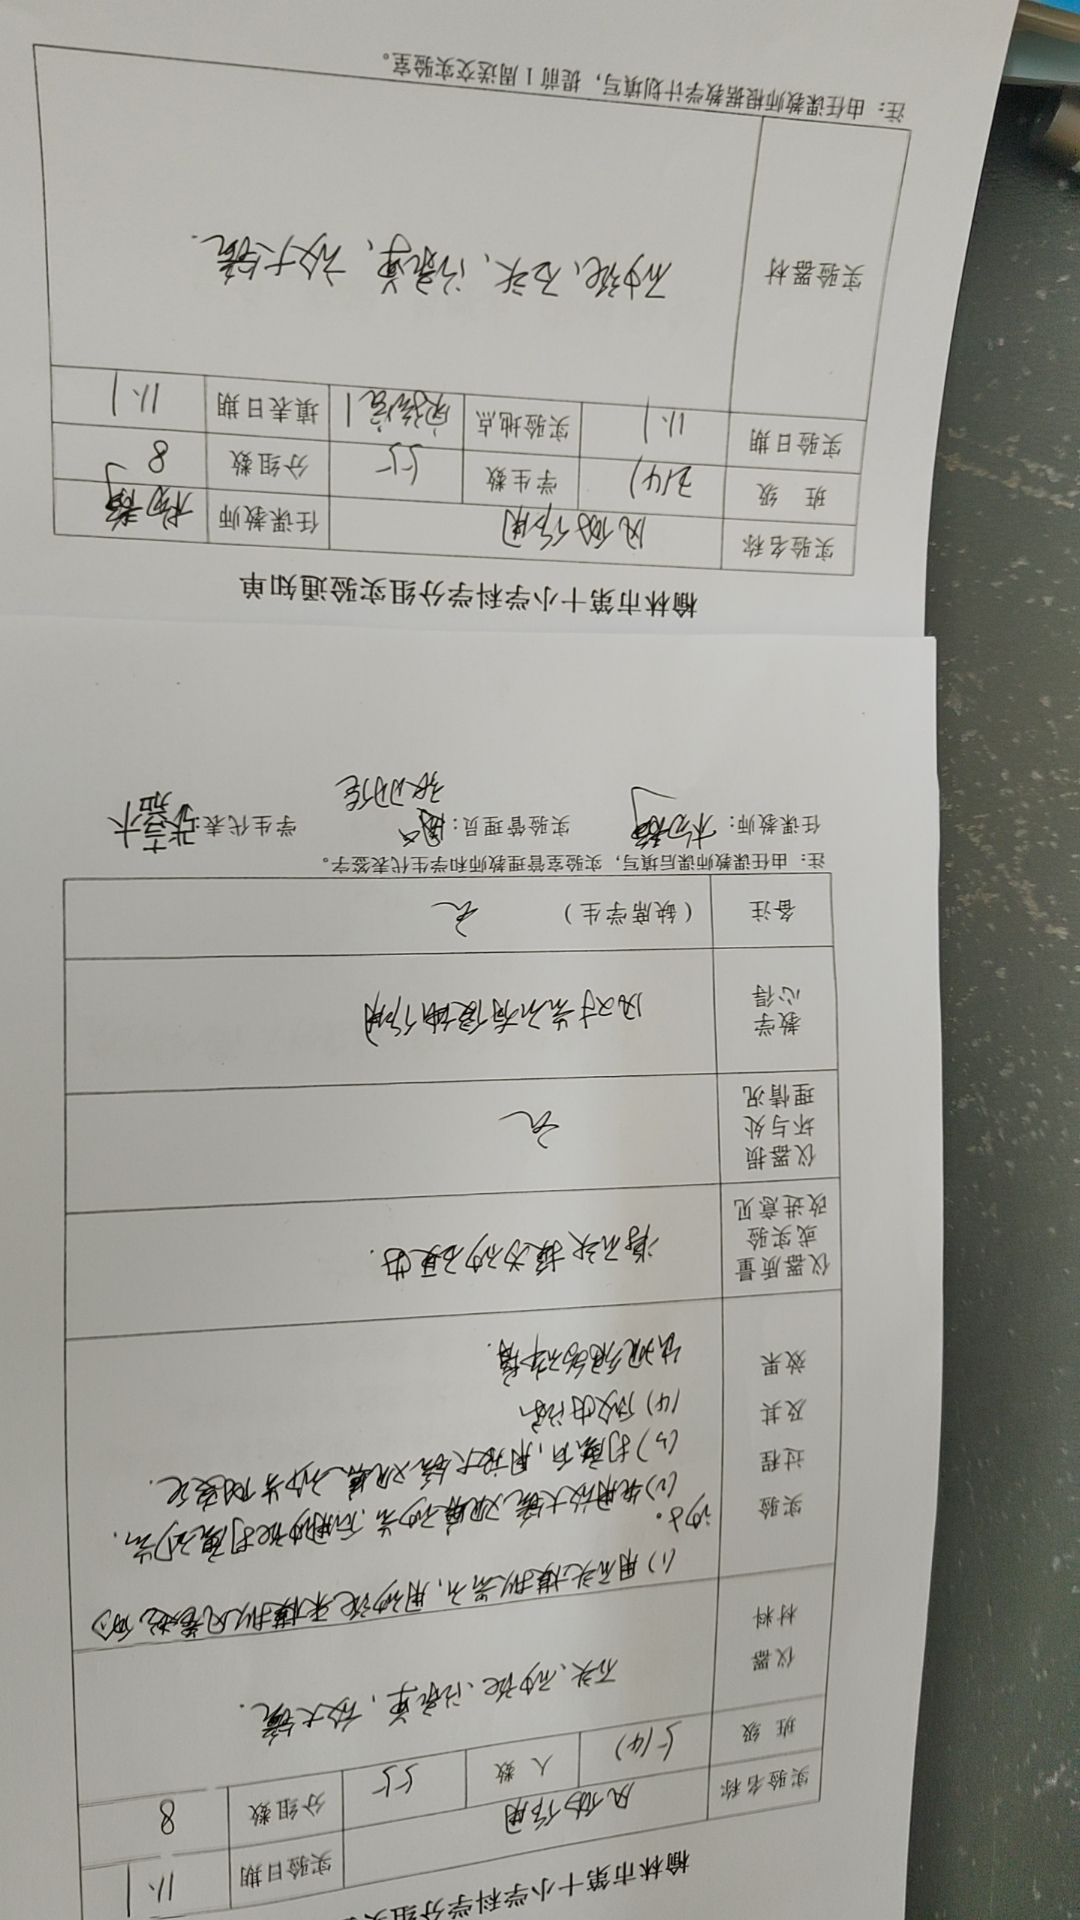 榆林市第十小学科学分组实
实验名称 风的作用 实验日期 11.1
班 级 5(4) 人 数 55 分组数 8
仪器材料 石头、砂纸、记录单、放大镜.
实验过程及其效果
(1) 用石头模拟岩石,用砂纸来模拟风卷起的
沙子。
(2) 先用放大镜观察砂岩,后用砂纸打磨砂岩.
(3) 打磨后,用放大镜观察砂岩的变化.
(4)
仪器质量或实验改进意见 将石头换为砂石更好.
仪器损坏与处理情况 无
教学心得 风对岩石有侵蚀作用
备注 (缺席学生) 无
注: 由任课教师课后填写, 实验室管理教师和学生代表签字。
任课教师: 实验管理员: 学生代表:
榆林市第十小学科学分组实验通知单
实验名称 风的作用 任课教师
班 级 学生数 55 分组数 8
实验日期 11.1 实验地点 实验室1 填表日期 11.1
实验器材 砂纸、石头、记录单、放大镜.
注: 由任课教师根据教学计划填写, 提前1周送交实验室。